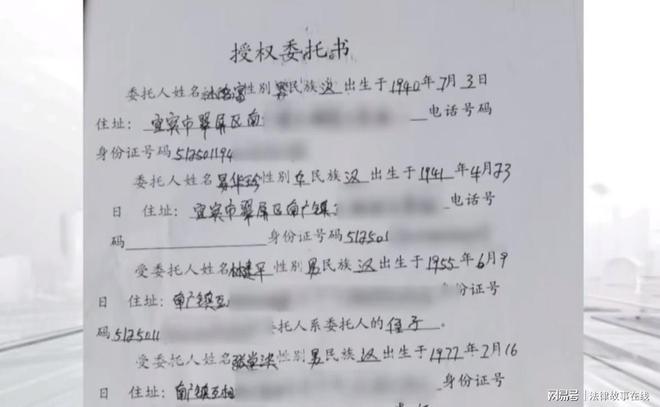 授权委托书
委托人姓名 性别男民族汉出生于1940年7月3日
住址：宜宾市翠屏区南 电话号码
身份证号码512501194
委托人姓名 华珍性别女民族汉出生于1941年4月23
日 住址：宜宾市翠屏区南广镇 电话号
码 身份证号码512501
受委托人姓名 平性别男民族汉出生于1955年6月9
日 住址：南广镇 份证号
码5125011 托人系委托人的侄子。
受委托人姓名 性别男民族汉出生于1977年2月16
日 住址：南广镇
网易号 | 法律故事在线